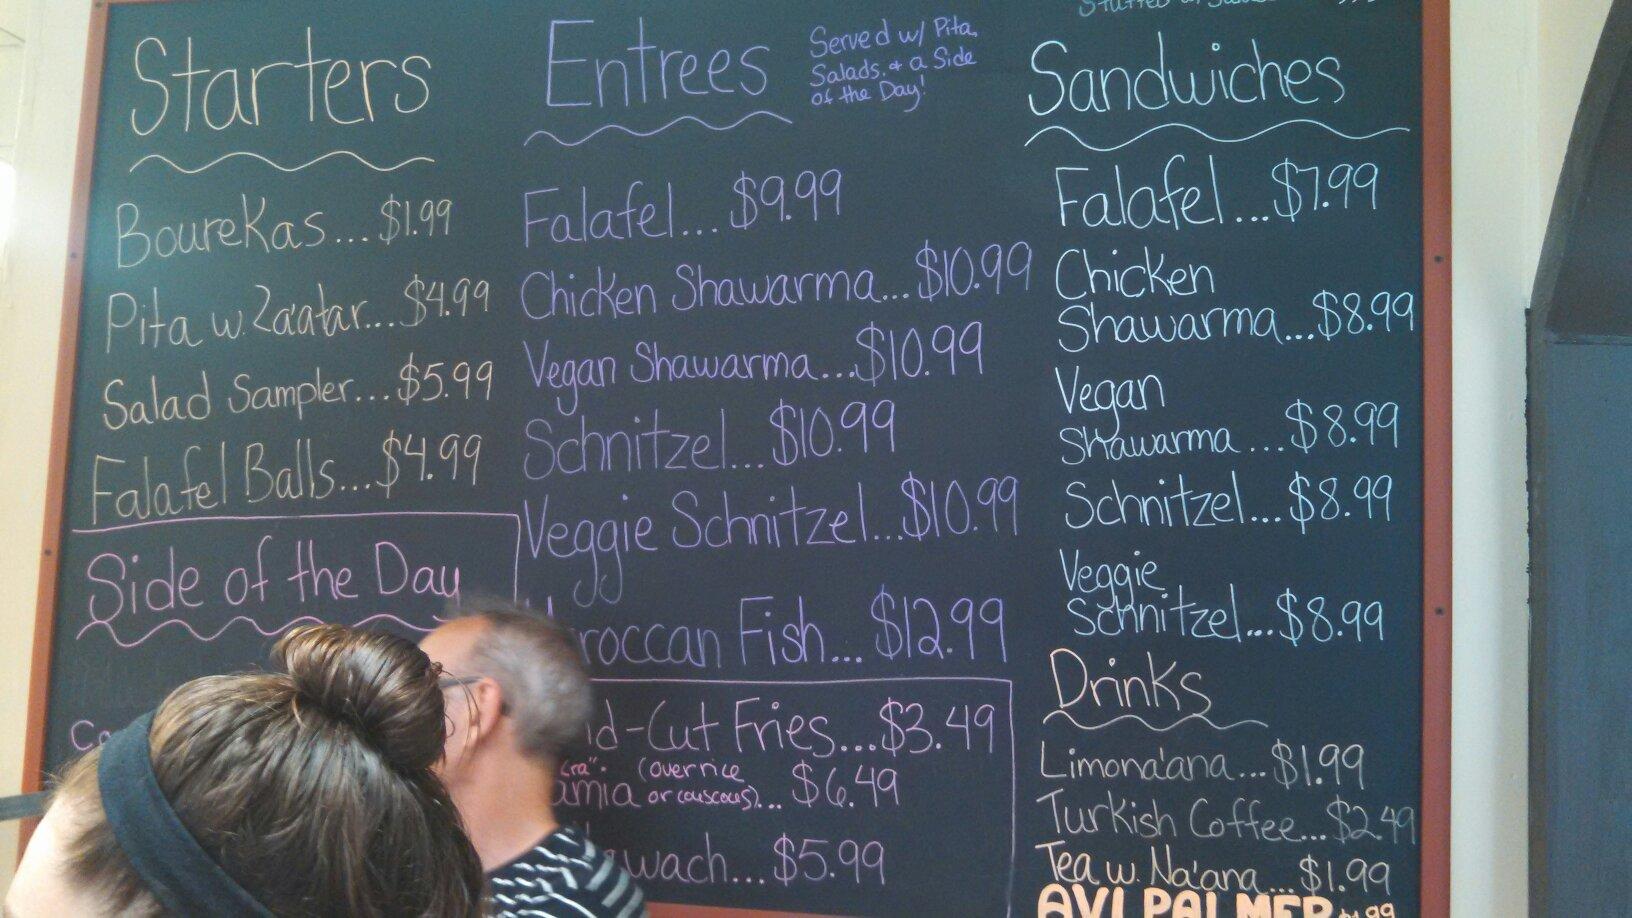 Starters
Bourekas...$1.99
Pita w. Za'atar...$4.99
Salad Sampler...$5.99
Falafel Balls...$4.99
Side of the Day
Entrees
Served w/ Pita,
Salads, + a Side
of the Day!
Falafel...$9.99
Chicken Shawarma...$10.99
Vegan Shawarma...$10.99
Schnitzel...$10.99
Veggie Schnitzel...$10.99
roccan Fish...$12.99
d-Cut Fries...$3.49
(over rice
amia or couscous)...$6.49
wach...$5.99
Sandwiches
Falafel...$7.99
Chicken
Shawarma...$8.99
Vegan
Shawarma...$8.99
Schnitzel...$8.99
Veggie
Schnitzel...$8.99
Drinks
Limona'ana...$1.99
Turkish Coffee...$2.49
Tea w. Na'ana...$1.99
AVI PALMER